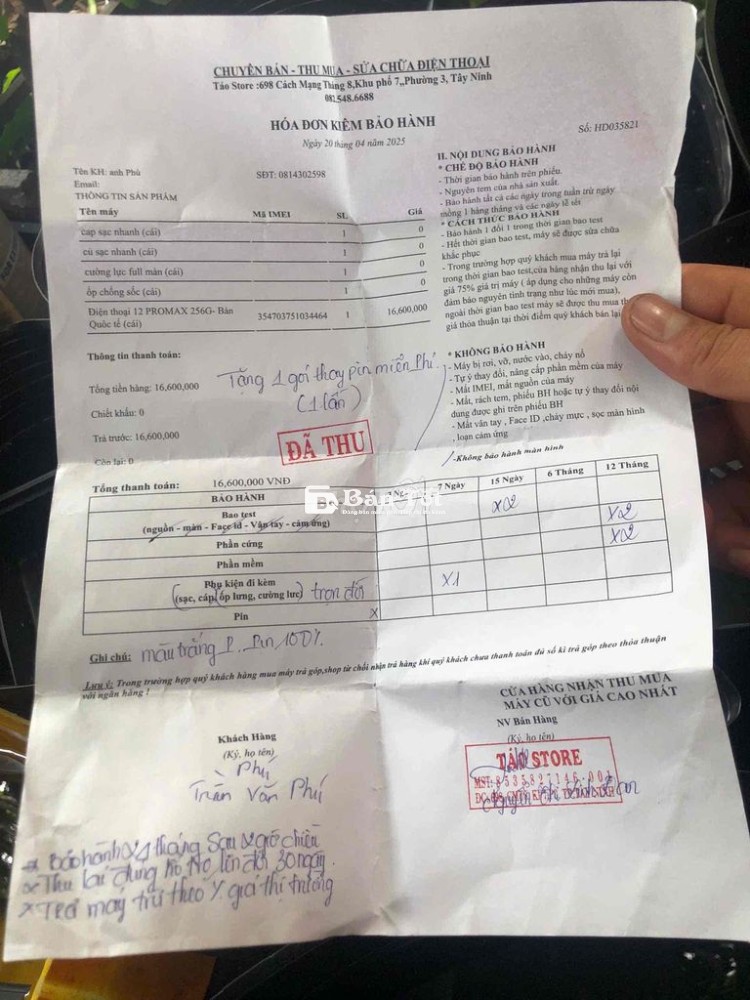 CHUYÊN BÁN - THU MUA - SỬA CHỮA ĐIỆN THOẠI
Táo Store :698 Cách Mạng Tháng 8,Khu phố 7,,Phường 3, Tây Ninh
082.548.6688
HÓA ĐƠN KIÊM BẢO HÀNH
Số: HD035821
Ngày 20 tháng 04 năm 2025
Tên KH: anh Phú
SĐT: 0814302598
Email:
THÔNG TIN SẢN PHẨM
Tên máy Mã IMEI SL Giá
cap sạc nhanh (cái) 1 0
củ sạc nhanh (cái) 1 0
cường lực full màn (cái) 1 0
ốp chống sốc (cái) 1 0
Điện thoại 12 PROMAX 256G- Bản
Quốc tế (cái) 354703751034464 1 16,600,000
II. NỘI DUNG BẢO HÀNH
* CHẾ ĐỘ BẢO HÀNH
- Thời gian bảo hành trên phiếu.
- Nguyên tem của nhà sản xuất.
- Bảo hành tất cả các ngày trong tuần trừ ngày
mồng 1 hàng tháng và các ngày lễ tết
* CÁCH THỨC BẢO HÀNH
- Bảo hành 1 đổi 1 trong thời gian bao test
- Hết thời gian bao test, máy sẽ được sửa chữa
khắc phục
- Trong trường hợp quý khách mua máy trả lại
trong thời gian bao test,cửa hàng nhận thu lại với
giá 75% giá trị máy ( áp dụng cho những máy còn
đảm bảo nguyên tình trạng như lúc mới mua),
ngoài thời gian bao test máy sẽ được thu mua
giá thỏa thuận tại thời điểm quý khách bán lại
* KHÔNG BẢO HÀNH
- Máy bị rơi, vỡ, nước vào, cháy nổ
- Tự ý thay đổi, nâng cấp phần mềm của máy
- Mất IMEI, mất nguồn của máy
- Mất, rách tem, phiếu BH hoặc tự ý thay đổi nội
dung được ghi trên phiếu BH
- Mất vân tay , Face ID ,chảy mực , sọc màn hình
, loạn cảm ứng
-Không bảo hành màn hình
Thông tin thanh toán:
Tổng tiền hàng: 16,600,000
Tặng 1 gói thay pin miễn Phí
(1 lần)
Chiết khấu: 0
Trả trước: 16,600,000
ĐÃ THU
Còn lại: 0
Tổng thanh toán: 16,600,000 VNĐ
BẢO HÀNH 7 Ngày 15 Ngày 6 Tháng 12 Tháng
Bao test
(nguồn - màn - Face id - Vân tay - cảm ứng) x02 x2
Phần cứng x02
Phần mềm
Phụ kiện đi kèm
(sạc, cáp, ốp lưng, cường lực) trọn đời x1
Pin x
Bán Tốt
Ghi chú: màu trắng Pin 100%.
Lưu ý: Trong trường hợp quý khách hàng mua máy trả góp,shop từ chối nhận trả hàng khi quý khách chưa thanh toán đủ số kì trả góp theo thỏa thuận
với ngân hàng !
CỬA HÀNG NHẬN THU MUA
MÁY CŨ VỚI GIÁ CAO NHẤT
NV Bán Hàng
(Ký, họ tên)
TÁO STORE
Khách Hàng
(Ký, họ tên)
Phú
Trần Văn Phú
Bảo hành 4 tháng sau 2 giờ chiều
Thu lại đúng lên đời 30 ngày
x Trả máy trừ theo % giá thị trường